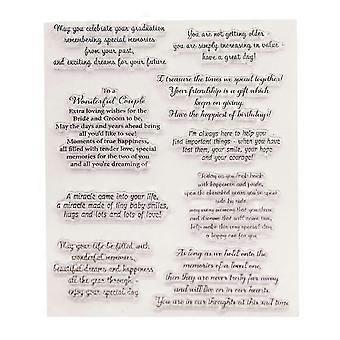 May you celebrate your graduation
remembering special memories
from your past,
and exciting dreams for your future
You are not getting older
you are simply increasing in value -
have a great day!
I treasure the times we spend together!
Your friendship is a gift which
keeps on giving.
Have the happiest of birthdays!
To a
Wonderful Couple
Extra loving wishes for the
Bride and Groom to be,
May the days and years ahead bring
all you'd like to see!
Moments of true happiness,
all filled with tender love, special
memories for the two of you
and all you're dreaming of
I'm always here to help you
find important things - when you have
lost them, your smile, your hope
and your courage!
A miracle came into your life,
a miracle made of tiny baby smiles,
hugs and lots and lots of love!
Today as you look back
with happiness and pride,
upon the cherished years you've spent
side by side,
may every moment that you share
and dreams that will come true,
help make this very special day
a happy one for you
May your life be filled with
wonderful memories,
beautiful dreams and happiness
all the year through -
enjoy your special day
As long as we hold onto the
memories of a loved one,
then they are never truly far away
and will live on in our hearts
You are in our thoughts at this sad time